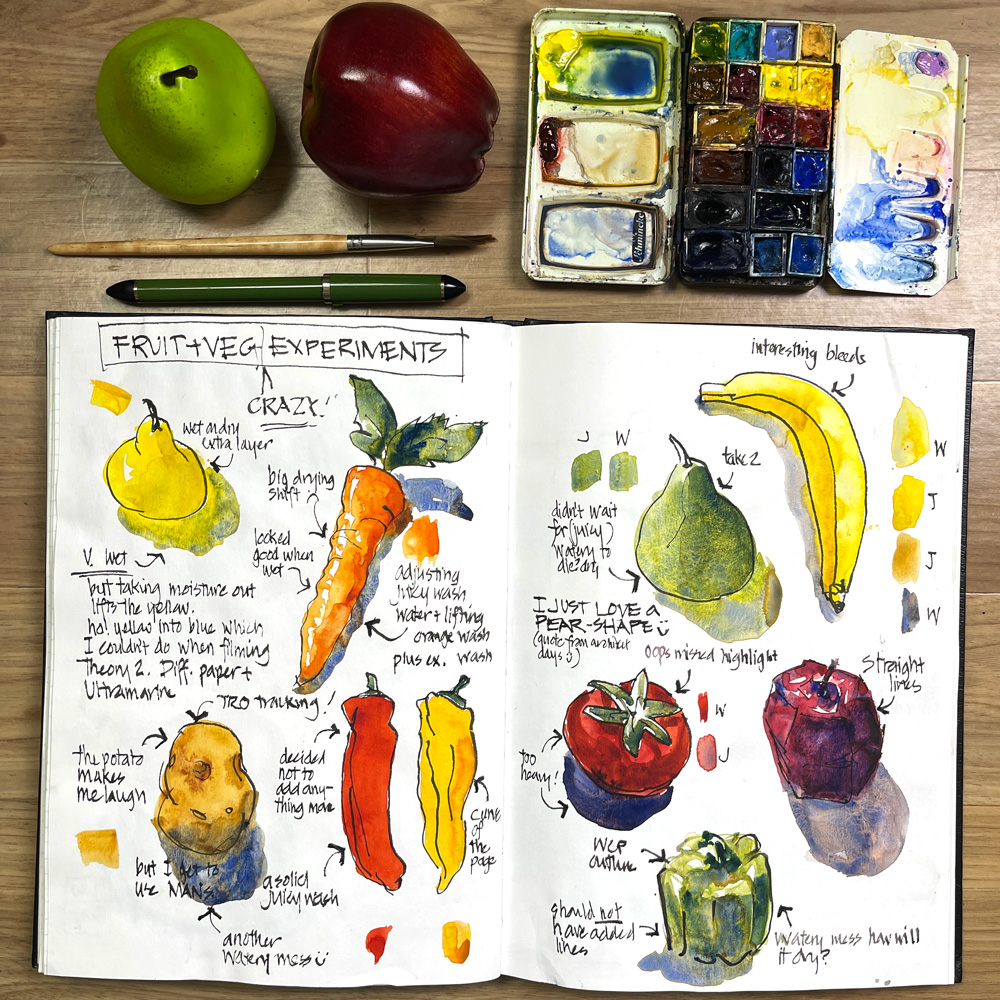 Schmincke
FRUIT+VEG EXPERIMENTS
CRAZY!!
wet on dry
extra layer
V. wet
but taking moisture out
lifts the yellow.
ho! yellow into blue which
I couldn't do when filming
Theory 2. Diff. paper +
Ultramarine
big drying
shift
looked
good when
wet
adjusting
juicy wash
water + lifting
orange wash
plus ex. wash
TRO tracking!
the potato
makes
me laugh
but I get to
use MANS
another
watery mess
decided
not to
add any-
thing more
a solid
juicy wash
curve
of
the
page
interesting bleeds
W
J
J
W
J W
take 2
didn't wait
for (juicy)
watery to
dry
I JUST LOVE A
PEAR-SHAPE
(quote from architect
days :)
oops missed highlight
W
J
too
heavy!
straight
lines
WCP
outline
should not
have added
lines
watery mess how will
it dry?